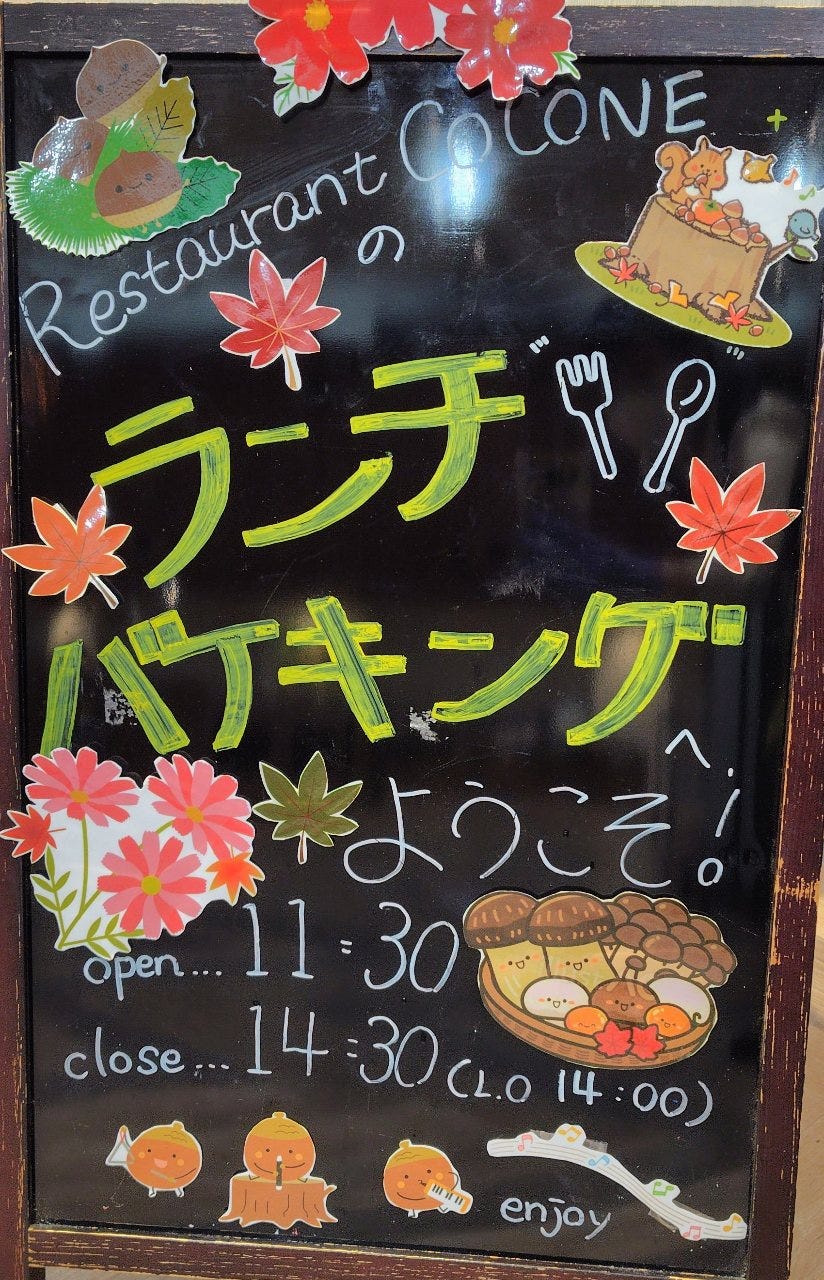 Restaurant CoCONE
の
ランチ
バケキング
へ
ようこそ!
open... 11:30
close... 14:30 (L.O 14:00)
enjoy